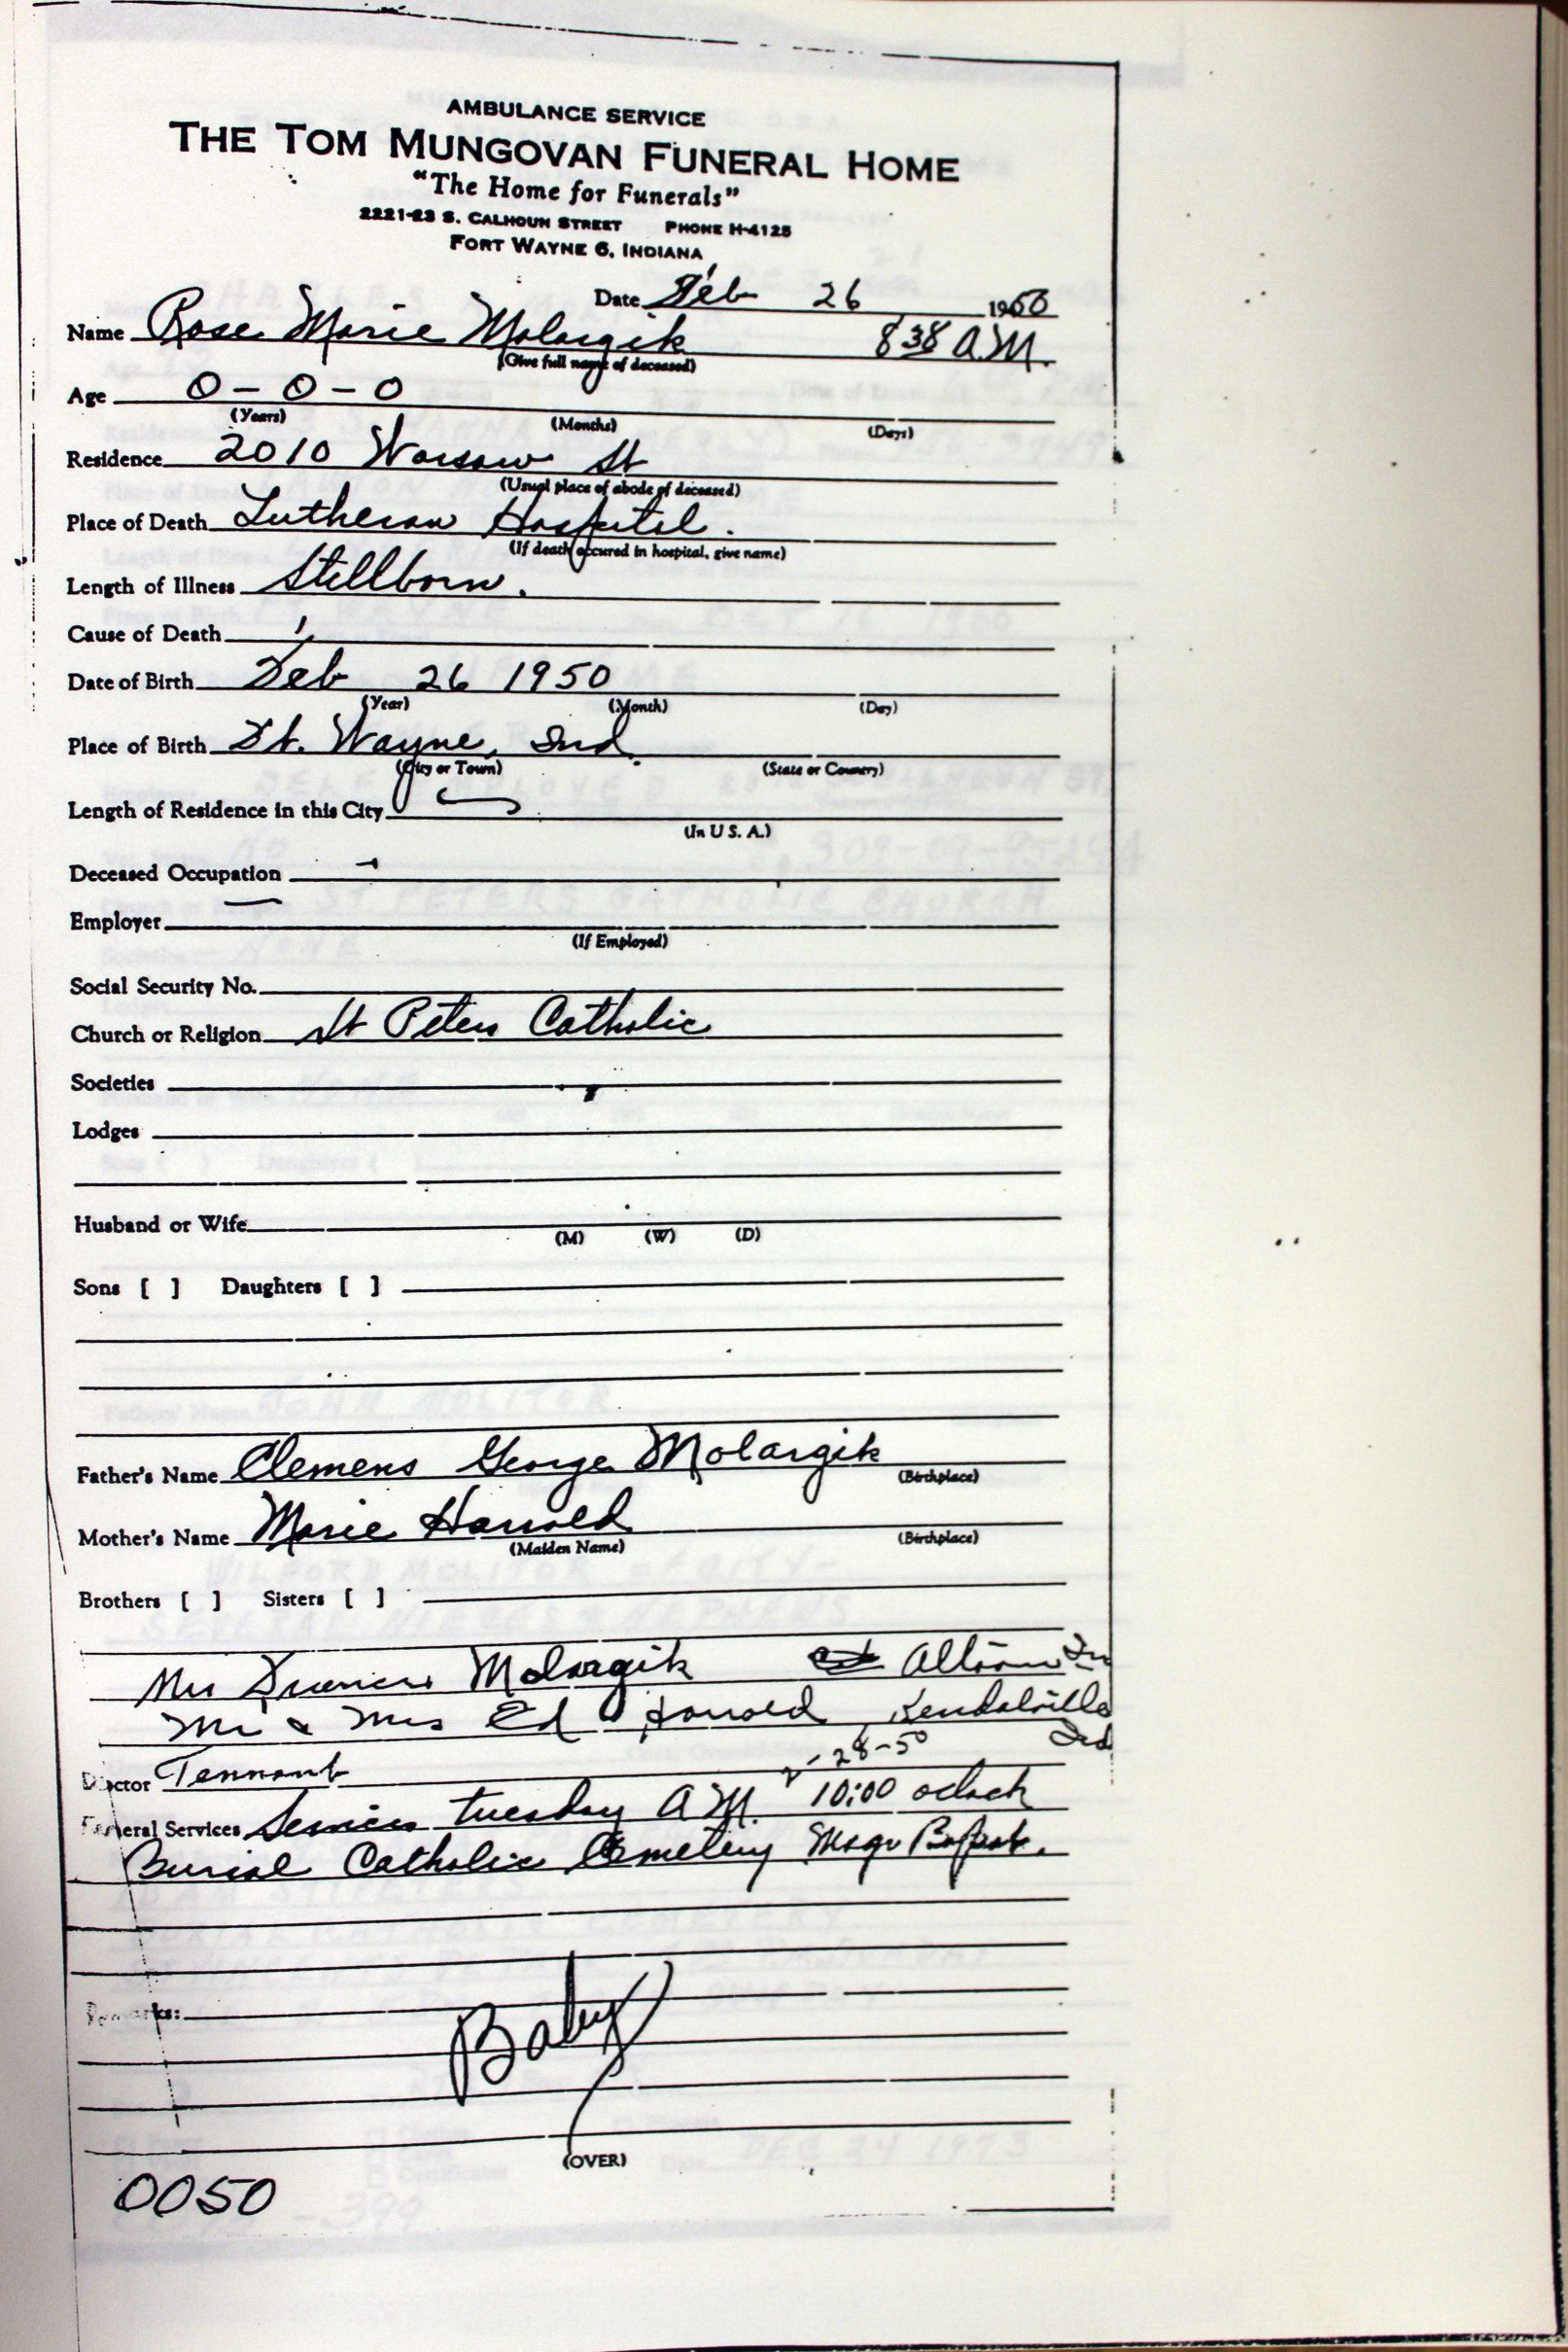 AMBULANCE SERVICE
THE TOM MUNGOVAN FUNERAL HOME
"The Home for Funerals"
2221-23 S. CALHOUN STREET PHONE H-4125
FORT WAYNE 6, INDIANA
Date Feb 26 1950
Name Rose Marie Molargik 8 38 A.M.
(Give full name of deceased)
Age 0-0-0
(Years) (Months) (Days)
Residence 2010 Warsaw St
(Usual place of abode of deceased)
Place of Death Lutheran Hospital.
(If death occured in hospital, give name)
Length of Illness Stillborn.
Cause of Death
Date of Birth Feb 26 1950
(Year) (Month) (Day)
Place of Birth Ft. Wayne, Ind.
(City or Town) (State or Country)
Length of Residence in this City
(In U S. A.)
Deceased Occupation
Employer
(If Employed)
Social Security No.
Church or Religion St Peters Catholic
Societies
Lodges
Husband or Wife
(M) (W) (D)
Sons [ ] Daughters [ ]
Father's Name Clemens George Molargik
(Birthplace)
Mother's Name Marie Harrold
(Maiden Name) (Birthplace)
Brothers [ ] Sisters [ ]
Molargik
Mr & Mrs Ed Harrold Kendalville
Ind
Doctor Tennant 2-28-50
Funeral Services Services Tuesday A.M. 10:00 oclock
Burial Catholic Cemetery
Remarks:
Baby
(OVER)
0050